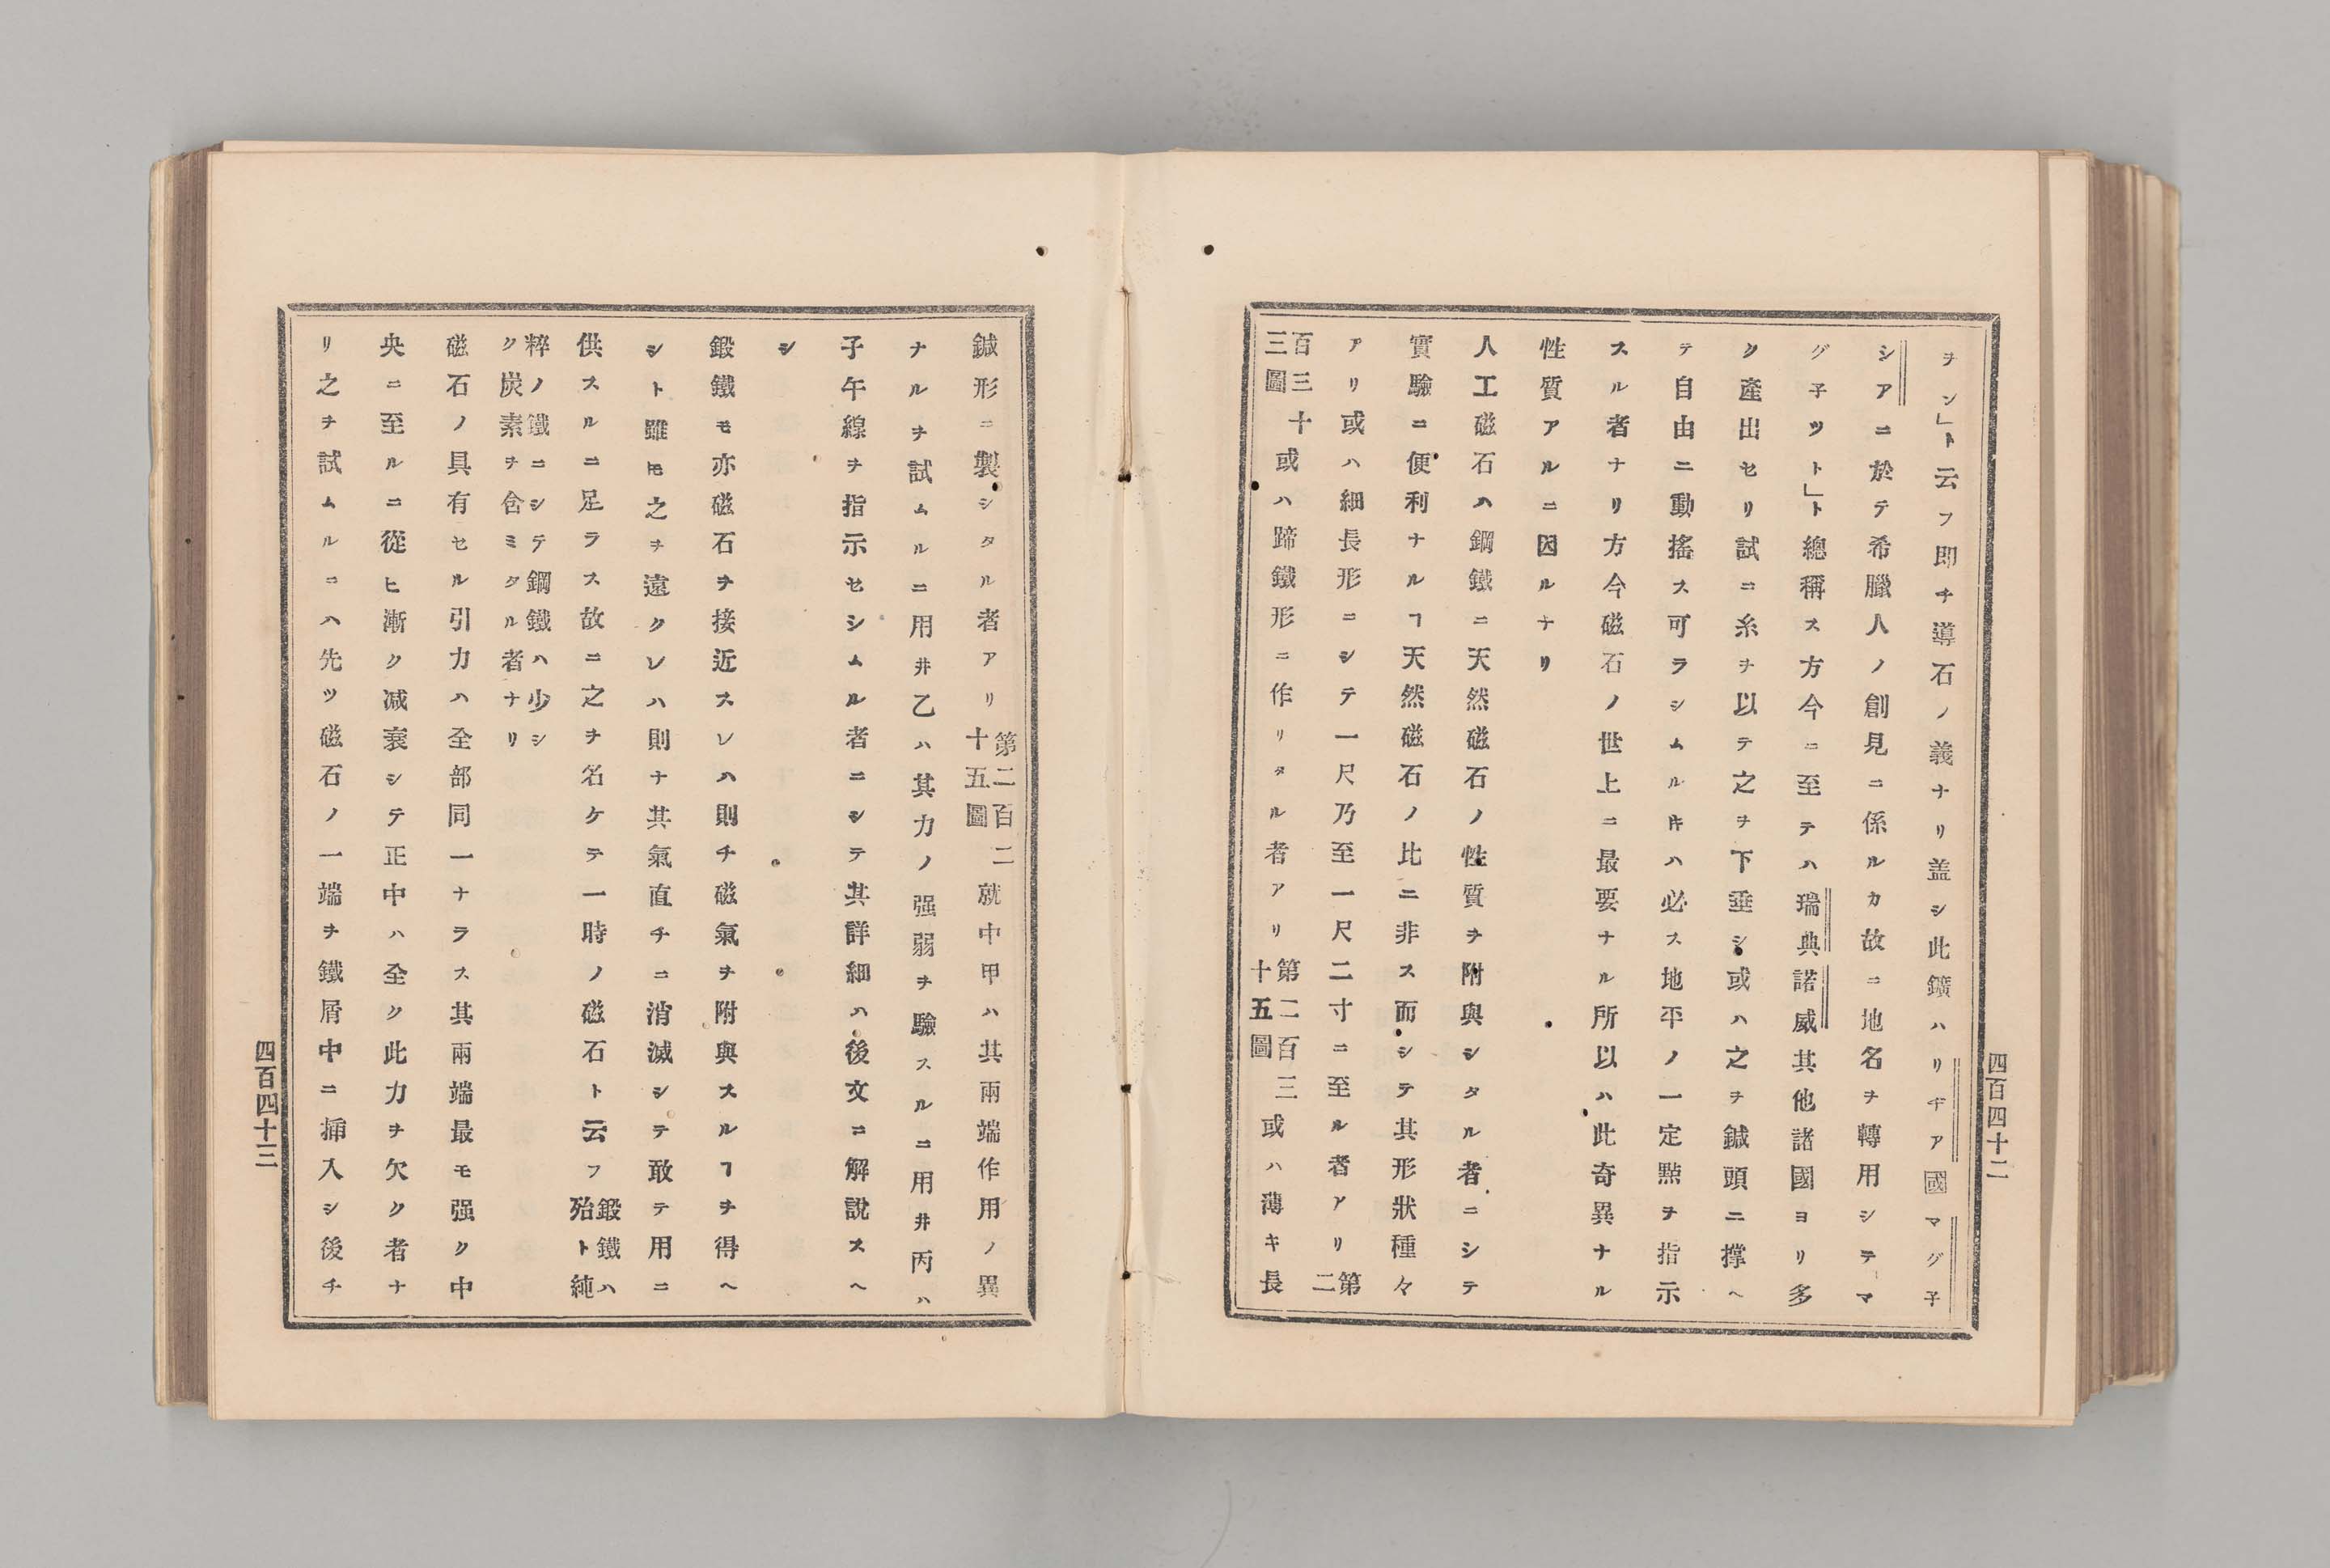 ヲン」ト云フ即チ導石ノ義ナリ盖シ此鑛ハリヂア國マグ子
シアニ於テ希臘人ノ創見ニ係ルカ故ニ地名ヲ轉用シテマ
グ子ツト」ト總稱ス方今ニ至テハ瑞典諾威其他諸國ヨリ多
ク產出セリ試ニ糸ヲ以テ之ヲ下垂シ或ハ之ヲ鍼頭ニ撑ヘ
テ自由ニ動搖ス可ラシムル𪜈ハ必ス地平ノ一定㸃ヲ指示
スル者ナリ方今磁石ノ世上ニ最要ナル所以ハ此奇異ナル
性質アルニ因ルナリ
人工磁石ハ鋼鐵ニ天然磁石ノ性質ヲ附與シタル者ニシテ
實驗ニ便利ナルヿ天然磁石ノ比ニ非ス而シテ其形狀種々
アリ或ハ細長形ニシテ一尺乃至一尺二寸ニ至ル者アリ第二
百三十三圖或ハ蹄鐵形ニ作リタル者アリ第二百三十五圖或ハ薄キ長
四百四十二
鍼形ニ製シタル者アリ第二百二十五圖就中甲ハ其兩端作用ノ異
ナルヲ試ムルニ用井乙ハ其力ノ强弱ヲ驗スルニ用井丙ハ
子午線ヲ指示セシムル者ニシテ其詳細ハ後文ニ解說スヘ
シ
鍛鐵モ亦磁石ヲ接近スレハ則チ磁氣ヲ附與スルヿヲ得ヘ
シト雖𪜈之ヲ遠クレハ則ナ其氣直チニ消滅シテ敢テ用ニ
供スルニ足ラス故ニ之ヲ名ケテ一時ノ磁石ト云フ鍛鐵ハ殆ト純
粹ノ鐵ニシテ鋼鐵ハ少シク炭素ヲ含ミタル者ナリ
磁石ノ具有セル引力ハ全部同一ナラス其兩端最モ强ク中
央ニ至ルニ從ヒ漸ク减衰シテ正中ハ全ク此力ヲ欠ク者ナ
リ之ヲ試ムルニハ先ツ磁石ノ一端ヲ鐵屑中ニ揷入シ後チ
四百四十三